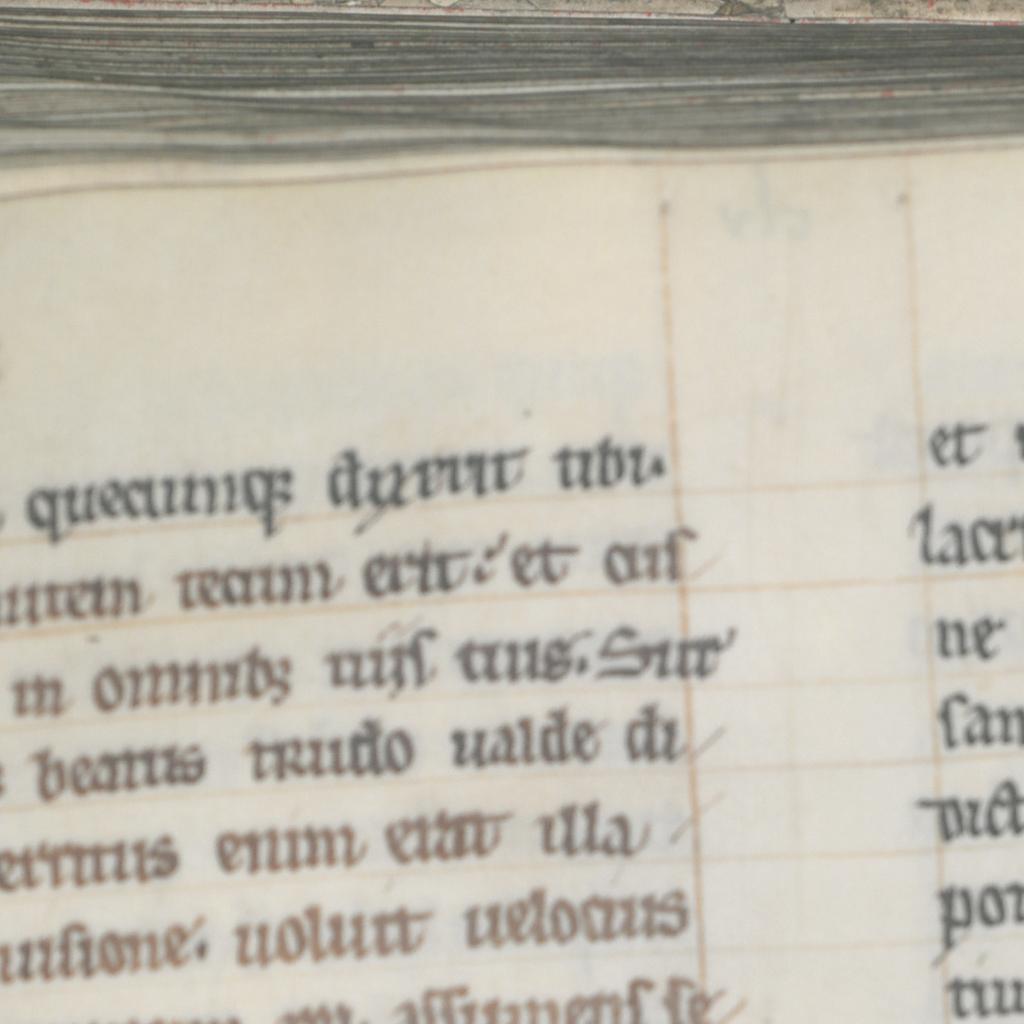 quecumq; dixerit tibi.
autem tecum erit: et aus
in omnib; uijs tuis. Sur
beatus trudo ualde di
territus enim erat illa
uisione. uoluit uelocius
assumens se
et
lacr
ne
san
dict
por
tiu